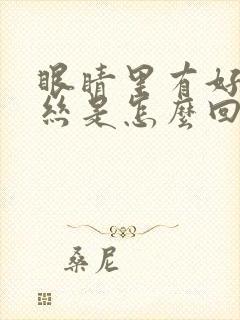 眼睛里有好
絲是怎麽回
桑尼